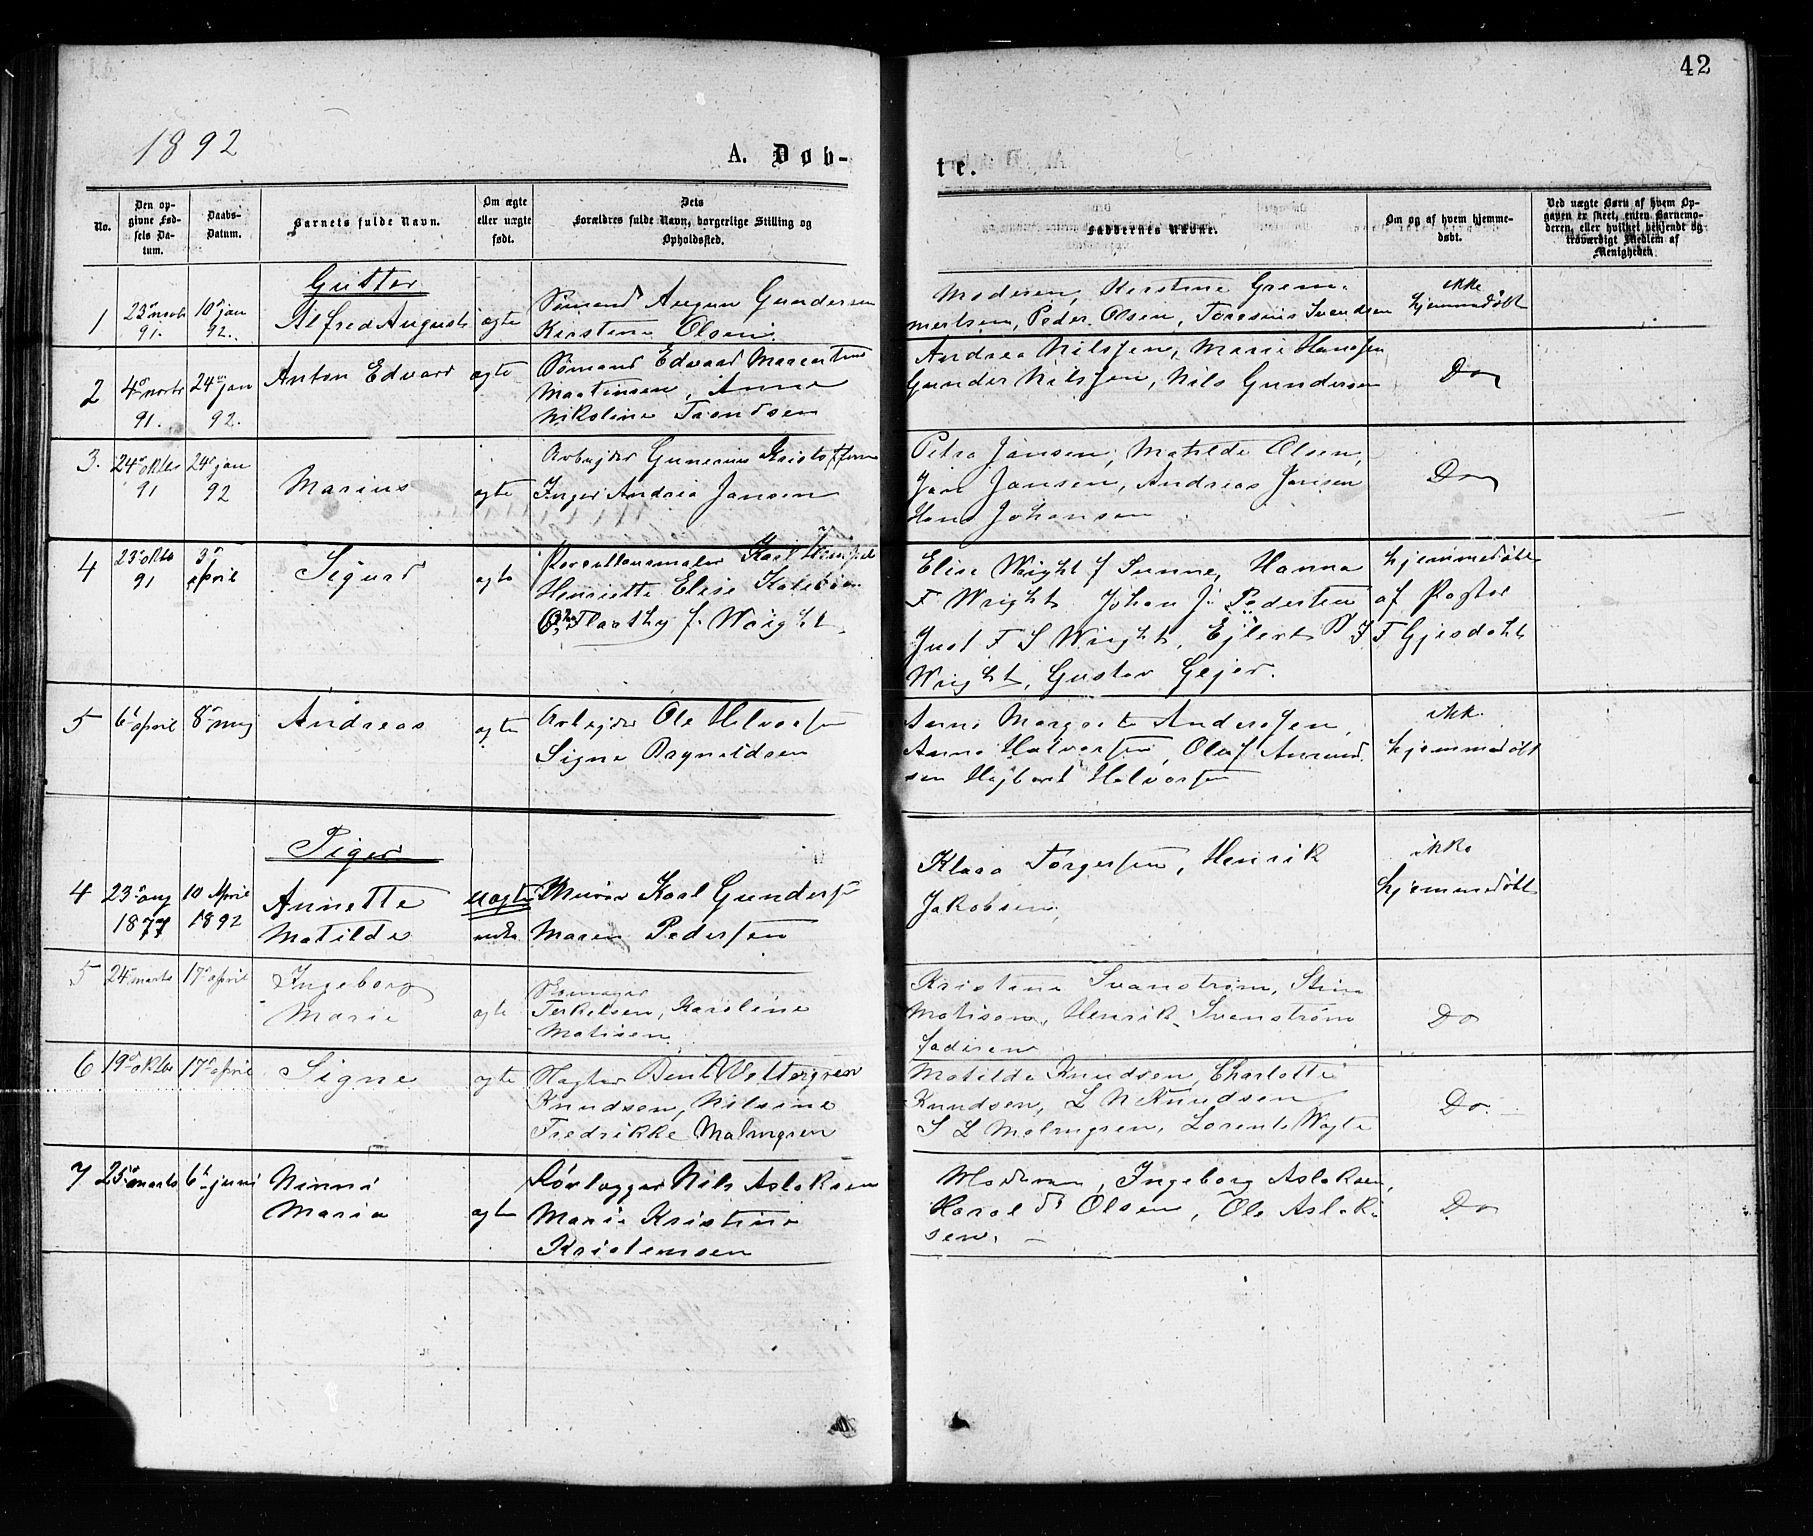 42
1892
A. Døb-
te.
No.
Den op-
givne Fød-
sels Da-
tum.
Daabs-
Datum.
Barnets fulde Navn.
Om ægte
eller uægte
født.
Dets
Forældres fulde Navn, borgerlige Stilling og
Opholdssted.
Faddernes Navne.
Om og af hvem hjemme-
døbt.
Ved uægte Børn af hvem Op-
gaven er skeet, enten Barnemo-
deren, eller hvilket bekjendt og
troværdigt Medlem af
Menigheden
Gutter
1
91.
10 jan
92.
Alfred August
ægte
Sømand August Gundersen
Kirstine Olsen
Moderen, Kirstine Grem-
mertsen, Peder Olsen, Toresius Svendsen
ikke
hjemmedøbt
2
4 novbr
91.
24 jan
92.
Anton Edvard
ægte
Sømand Edvard
Martinsen, Anne
Nikoline Tsendsen
Andrea Nilssen, Marie Hanssen
Gunder Nilssen, Nils Gundersen
Do
3.
24 oktbr
91
24 jan
92
Marius
ægte
Arbejder Gunerius Kristoffersen
Inger Andrea Jansen
Petra Jansen, Matilde Olsen,
Jan Jansen, Andreas Jansen
Hans Johansen
Do
4
23 oktbr
91
3 april
Sigurd
ægte
Porcellænsmaler Karl
Henriette Elise
f. Wright
Elise Wright f Sunne, Hanna
F Wright Johan J. Pedersen
Just F S Wright, Ejlert
Wright, Gustav Gejer.
hjemmedøbt
af Pastor
F Gjesdahl
5
6 april
8 maj
Andreas
ægte
Arbejder Ole Halvorsen
Signe Bryneldsen
Anne Margrete Anderssen,
Anne Halvorsen, Oluf Amund
sen Halvorsen
ikke
hjemmedøbt
Piger
4
23 aug
1877
10 April
1892
Annette
Matilde
uægte
Murer Karl Gunders.
Maren Pedersen
Klara Torgersen, Henrik
Jakobsen
ikke
hjemmedøbt
5
24 marts
17 april
Ingeborg
Marie
ægte
Skomager
Terkelsen, Karoline
Matisen
Kristine Svanstrøm, Stine
Matisen, Henrik Svenstrøm
faderen
Do
6
19 oktbr
17 april
Signe
ægte
Slagter Bent Vettergren
Knudsen, Nilsine
Fredrikke Malmgren
Matilda Knudsen, Charlotte
Knudsen, L N Knudsen
S L Malmgren, Lorents
Do.
7
25 marts
6 juni
Ninni
Maria
ægte
Rørlægger Nils Aslaksen
Marie Kristine
Kristensen
Moderen, Ingeborg Aslaksen,
Harald Olsen, Ole Aslak-
sen.
Do